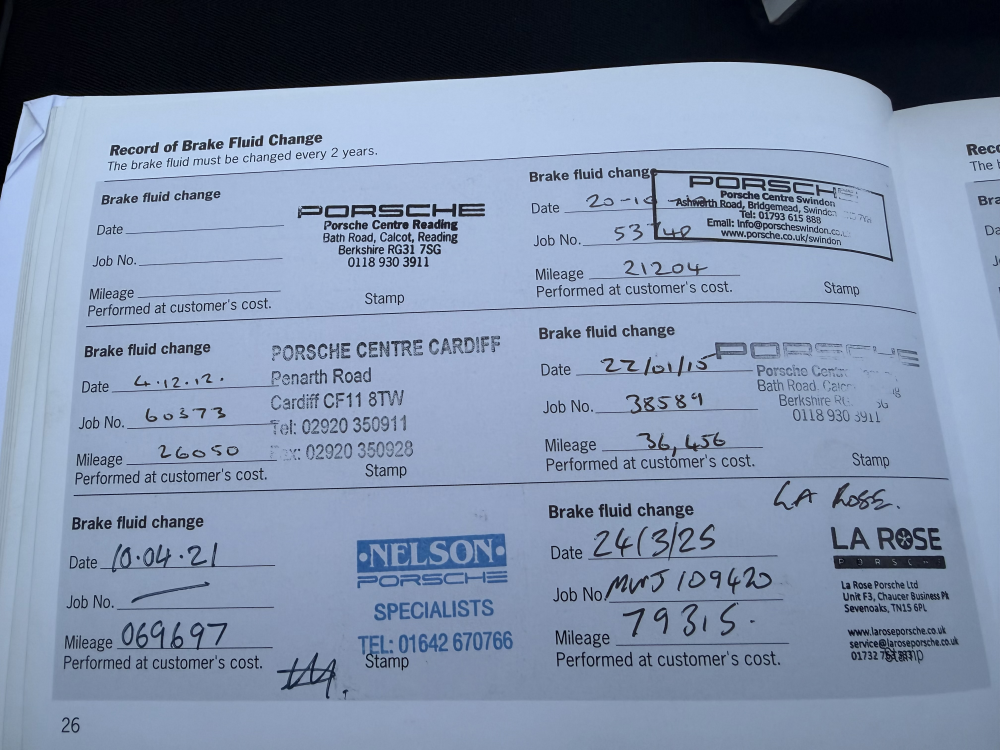 Record of Brake Fluid Change
The brake fluid must be changed every 2 years.
Brake fluid change
Date
Job No.
Mileage
Performed at customer's cost.
PORSCHE
Porsche Centre Reading
Bath Road, Calcot, Reading
Berkshire RG31 7SG
0118 930 3911
Stamp
Brake fluid change
Date 20-10
Job No. 53740
Mileage 21204
Performed at customer's cost.
PORSCHE
Porsche Centre Swindon
Ashworth Road, Bridgemead, Swindon
Tel: 01793 615 888
Email: info@porscheswindon.co.
www.porsche.co.uk/swindon
Stamp
Brake fluid change
Date 4.12.12.
Job No. 60373
Mileage 26050
Performed at customer's cost.
PORSCHE CENTRE CARDIFF
Penarth Road
Cardiff CF11 8TW
Tel: 02920 350911
Fax: 02920 350928
Stamp
Brake fluid change
Date 22/01/15
Job No. 38589
Mileage 36,456
Performed at customer's cost.
PORSCHE
Porsche Centre
Bath Road, Calcot
Berkshire
0118 930 3911
Stamp
Brake fluid change
Date 10.04.21
Job No.
Mileage 069697
Performed at customer's cost.
•NELSON•
PORSCHE
SPECIALISTS
TEL: 01642 670766
Stamp
Brake fluid change
Date 24/3/25
Job No MWJ 109420
Mileage 79315.
Performed at customer's cost.
LA ROSE.
LA ROSE
PORSCHE
La Rose Porsche Ltd
Unit F3, Chaucer Business Pk
Sevenoaks, TN15 6PL
www.laroseporsche.co.uk
service@laroseporsche.co.uk
01732
Stamp
26
Rec
The b
Bra
Da
Jo